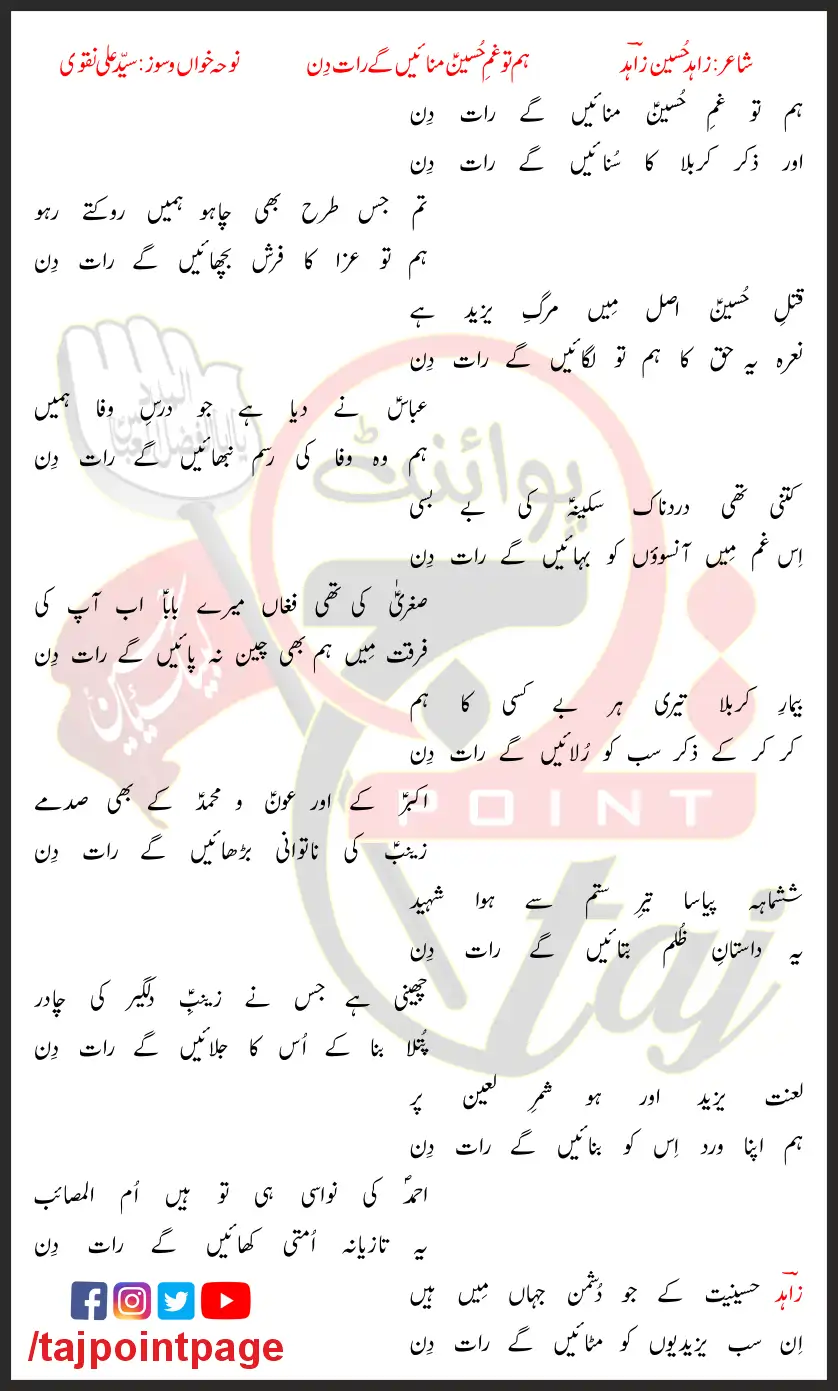 شاعر: زاہد حُسین زاہدؔ ہم تو غمِ حُسینؑ منائیں گے رات دِن نوحہ خواں و سوز: سیّد علی نقوی
ہم تو غمِ حُسینؑ منائیں گے رات دِن
اور ذکر کربلا کا سُنائیں گے رات دِن
تم جس طرح بھی چاہو ہمیں روکتے رہو
ہم تو عزا کا فرش بچھائیں گے رات دِن
قتلِ حُسینؑ اصل مِیں مرگِ یزید ہے
نعرہ یہ حق کا ہم تو لگائیں گے رات دِن
عباسؑ نے دیا ہے جو درسِ وفا ہمیں
ہم وہ وفا کی رسم نبھائیں گے رات دِن
کتنی تھی دردناک سکینہؑ کی بے بسی
اِس غم مِیں آنسوؤں کو بہائیں گے رات دِن
صغریٰؑ کی تھی فغاں میرے باباؑ اب آپ کی
فرقت مِیں ہم بھی چین نہ پائیں گے رات دِن
بیمارِ کربلا تیری ہر بے کسی کا ہم
کر کر کے ذکر سب کو رُلائیں گے رات دِن
اکبرؑ کے اور عونؑ و محمدؑ کے بھی صدمے
زینبؑ کی ناتوانی بڑھائیں گے رات دِن
ششماہہ پیاسا تیرِ ستم سے ہوا شہید
یہ داستانِ ظُلم بتائیں گے رات دِن
چھینی ہے جس نے زینبِؑ دلگیر کی چادر
پُتلا بنا کے اُس کا جلائیں گے رات دِن
لعنت یزید اور ہو شمرِ لعین پر
ہم اپنا ورد اِس کو بنائیں گے رات دِن
احمدؐ کی نواسی ہی تو ہیں اُم المصائب
یہ تازیانہ اُمتی کھائیں گے رات دِن
زاہدؔ حسینیت کے جو دُشمن جہاں مِیں ہیں
اِن سب یزیدیوں کو مٹائیں گے رات دِن
/tajpointpage
پوائنٹ
تاج
POINT
taj
لبیک یا حسینؑ
السلام
یا ابا الفضل العباس